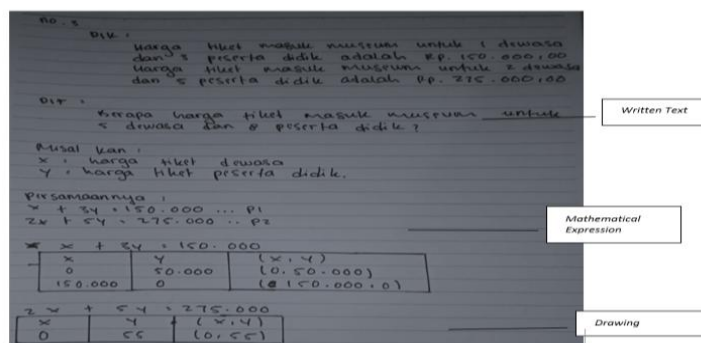 No. 3
Dik :
Harga tiket masuk museum untuk 1 dewasa
dan 3 peserta didik adalah Rp. 150.000,00
Harga tiket masuk museum untuk 2 dewasa
dan 5 peserta didik adalah Rp. 275.000,00
Dit :
Berapa harga tiket masuk museum untuk
5 dewasa dan 8 peserta didik?
Written Text
Misal kan :
x : harga tiket dewasa
y : harga tiket peserta didik.
Persamaannya :
x + 3y = 150.000 ... P1
2x + 5y = 275.000 ... P2
Mathematical Expression
x + 3y = 150.000
x y (x, y)
0 50.000 (0, 50.000)
150.000 0 (150.000, 0)
2x + 5y = 275.000
x y (x, y)
0 55 (0, 55)
Drawing